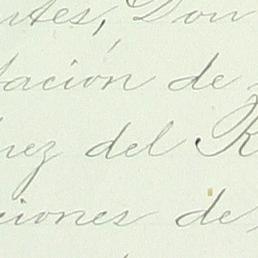 ntes, Don
tación de
nez del R
ciones de